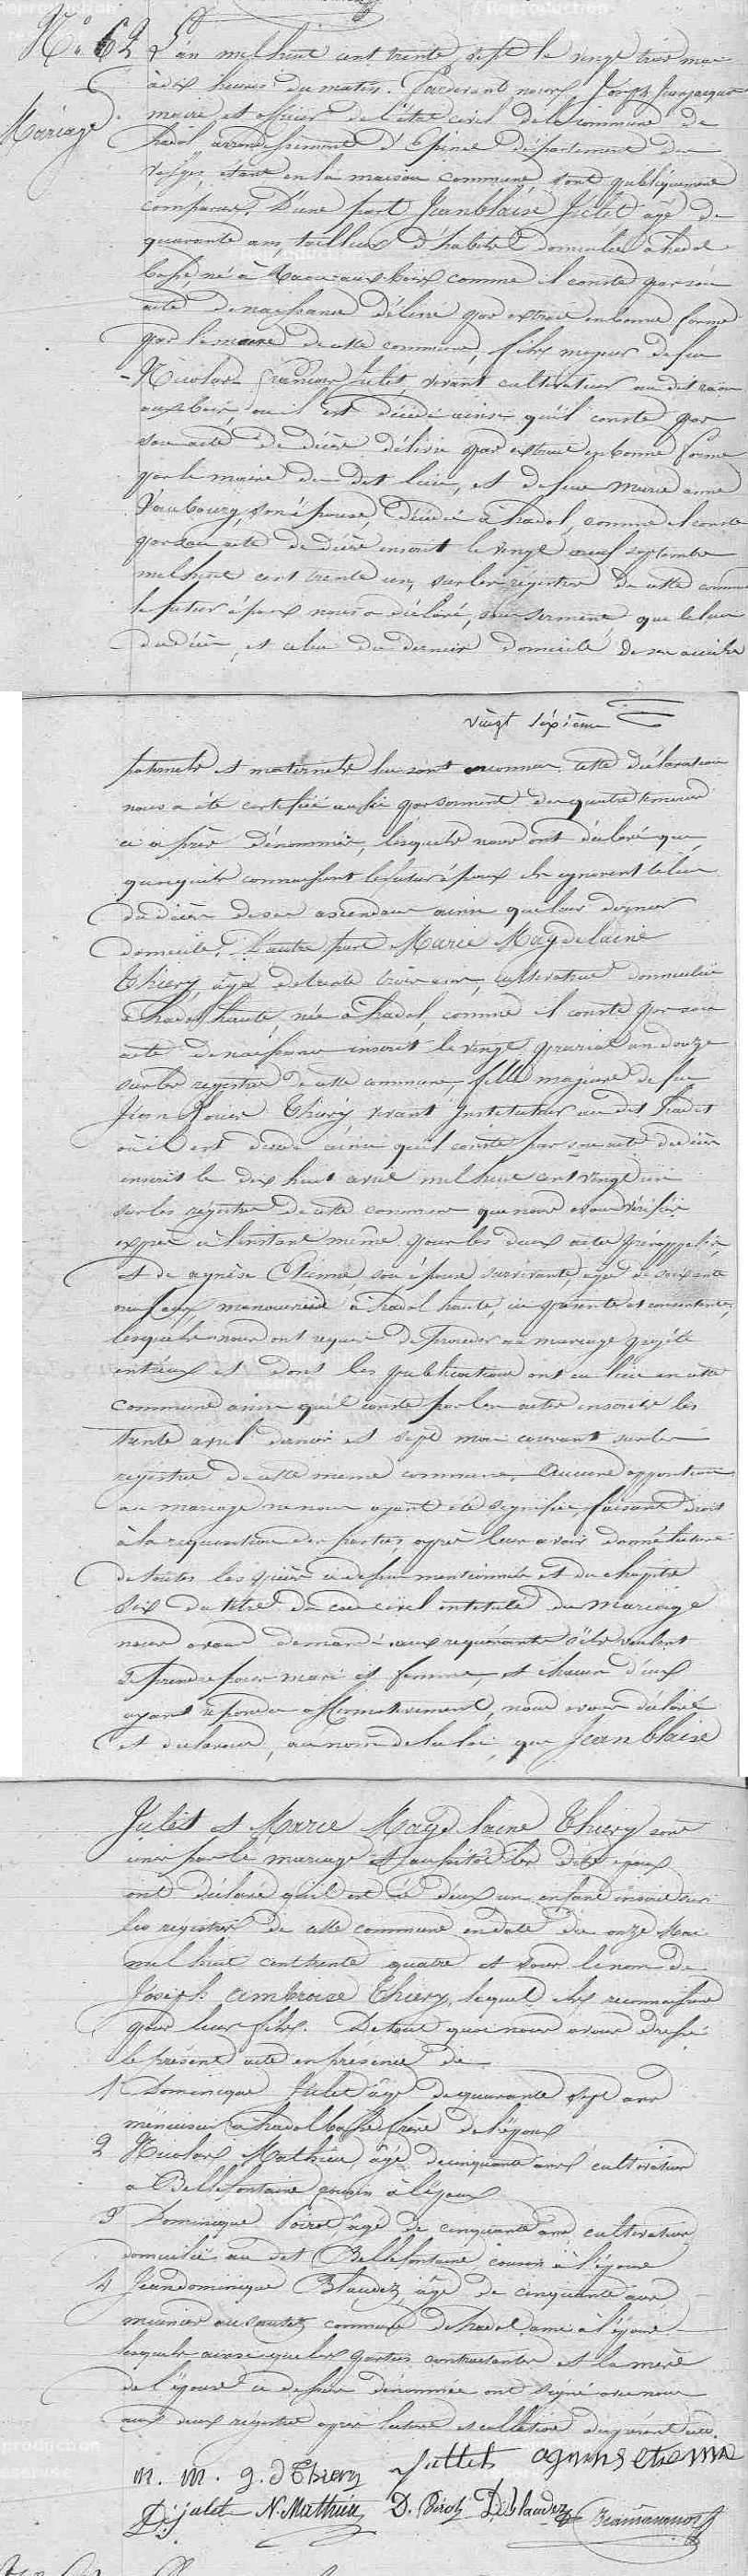 N.° 62 L'an mil huit cent trente sept le vingt trois mai
à dix heures du matin. Pardevant nous, Joseph Jeanjacquot
Mariage
maire et officier de l'état civil de la commune de
hadol arrondissement d'Epinal département des
vosges, étant en la maison commune sont publiquement
comparus. D'une part Jean blaise Julet âgé de
quarante ans, tailleur d'habits domicilié à hadol
basse, né à Raon aux bois comme il conste par son
acte de naissance délivré par extrait en bonne forme
par le maire de cette commune, fils majeur de feu
Nicolas François Julet, vivant cultivateur au dit raon
aux bois, où il est décédé ainsi qu'il conste par
son acte de décès délivré par extrait en bonne forme
par le maire du dit lieu, et de feue Marie anne
Vaubourg, son épouse, décédée à hadol, comme il conste
par son acte de décès inscrit le vingt neuf septembre
mil huit cent trente un, sur les registres de cette commune
le futur époux nous a déclaré, sous serment que le lieu
du décès, et celui du dernier domicile de ses aieuls
vingt sixième
paternels et maternels lui sont inconnus. cette déclaration
nous a été certifiée aussi par serment des quatre témoins
ci après dénommés, lesquels nous ont déclaré que
quoiqu'ils connaissent le futur époux ils ignorent le lieu
du décès de ses ascendans ainsi que leur dernier
domicile. D'autre part Marie Magdelaine
Thiery, âgée de trente trois ans, cultivatrice domiciliée
à hadol haute, née à hadol, comme il conste par son
acte de naissance inscrit le vingt prairial an douze
sur les registres de cette commune, fille majeure de feu
Jean Thiery, vivant Instituteur au dit hadol
où il est décédé ainsi qu'il conste par son acte de décès
inscrit le dix huit avril mil huit cent vingt un
sur les registres de cette commune que nous avons vérifiés
exprès à l'instant même pour les deux actes prérappelés,
et de agnès Etienne, son épouse survivante, âgée de soixante
neuf ans, manouvrière à hadol haute, ici présente et consentante,
lesquels nous ont requis de procéder au mariage projeté
entr'eux et dont les publications ont eu lieu en cette
commune ainsi qu'il conste par les actes inscrits les
trente avril dernier et sept mai courant sur les
registres de cette même commune. Aucune opposition
au mariage ne nous ayant été signifiée, faisant droit
à la requisition des parties, après leur avoir donné lecture
de toutes les pièces ci dessus mentionnées et du chapitre
six du titre du code civil intitulé du Mariage
nous avons demandé aux requérants s'ils veulent
se prendre pour mari et femme, et chacun d'eux
ayant répondu affirmativement, nous avons déclaré
et déclarons, au nom de la loi, que Jean blaise
Julet et Marie Magdelaine Thiery sont
unis par le mariage et aussitôt les dits époux
ont déclaré qu'il est né d'eux un enfant inscrit sur
les registres de cette commune en date du onze Mai
mil huit cent trente quatre et sous le nom de
Joseph Ambroise Thiery, lequel ils reconnaissent
pour leur fils. De tout quoi nous avons dressé
le présent acte en présence de
1 Dominique Julet âgé de quarante sept ans
menuisier à hadol basse frère de l'époux
2 Nicolas Mathieu âgé de cinquante ans cultivateur
à Bellefontaine cousin à l'époux
3 Dominique Poirot âgé de cinquante ans cultivateur
domicilié au dit Bellefontaine cousin à l'épouse
4 Jean dominique Blaudez, âgé de cinquante ans
meunier au commune de hadol ami à l'épouse
lesquels ainsi que les parties contractantes et la mère
de l'épouse ci dessus dénommée ont signé avec nous
aux deux registres après lecture et collation du présent acte.
m. m. g. d Thiery Jullet agnns etienne
D. julet N. Mathieu D. Pirot D. blaudez Jeanjacquot